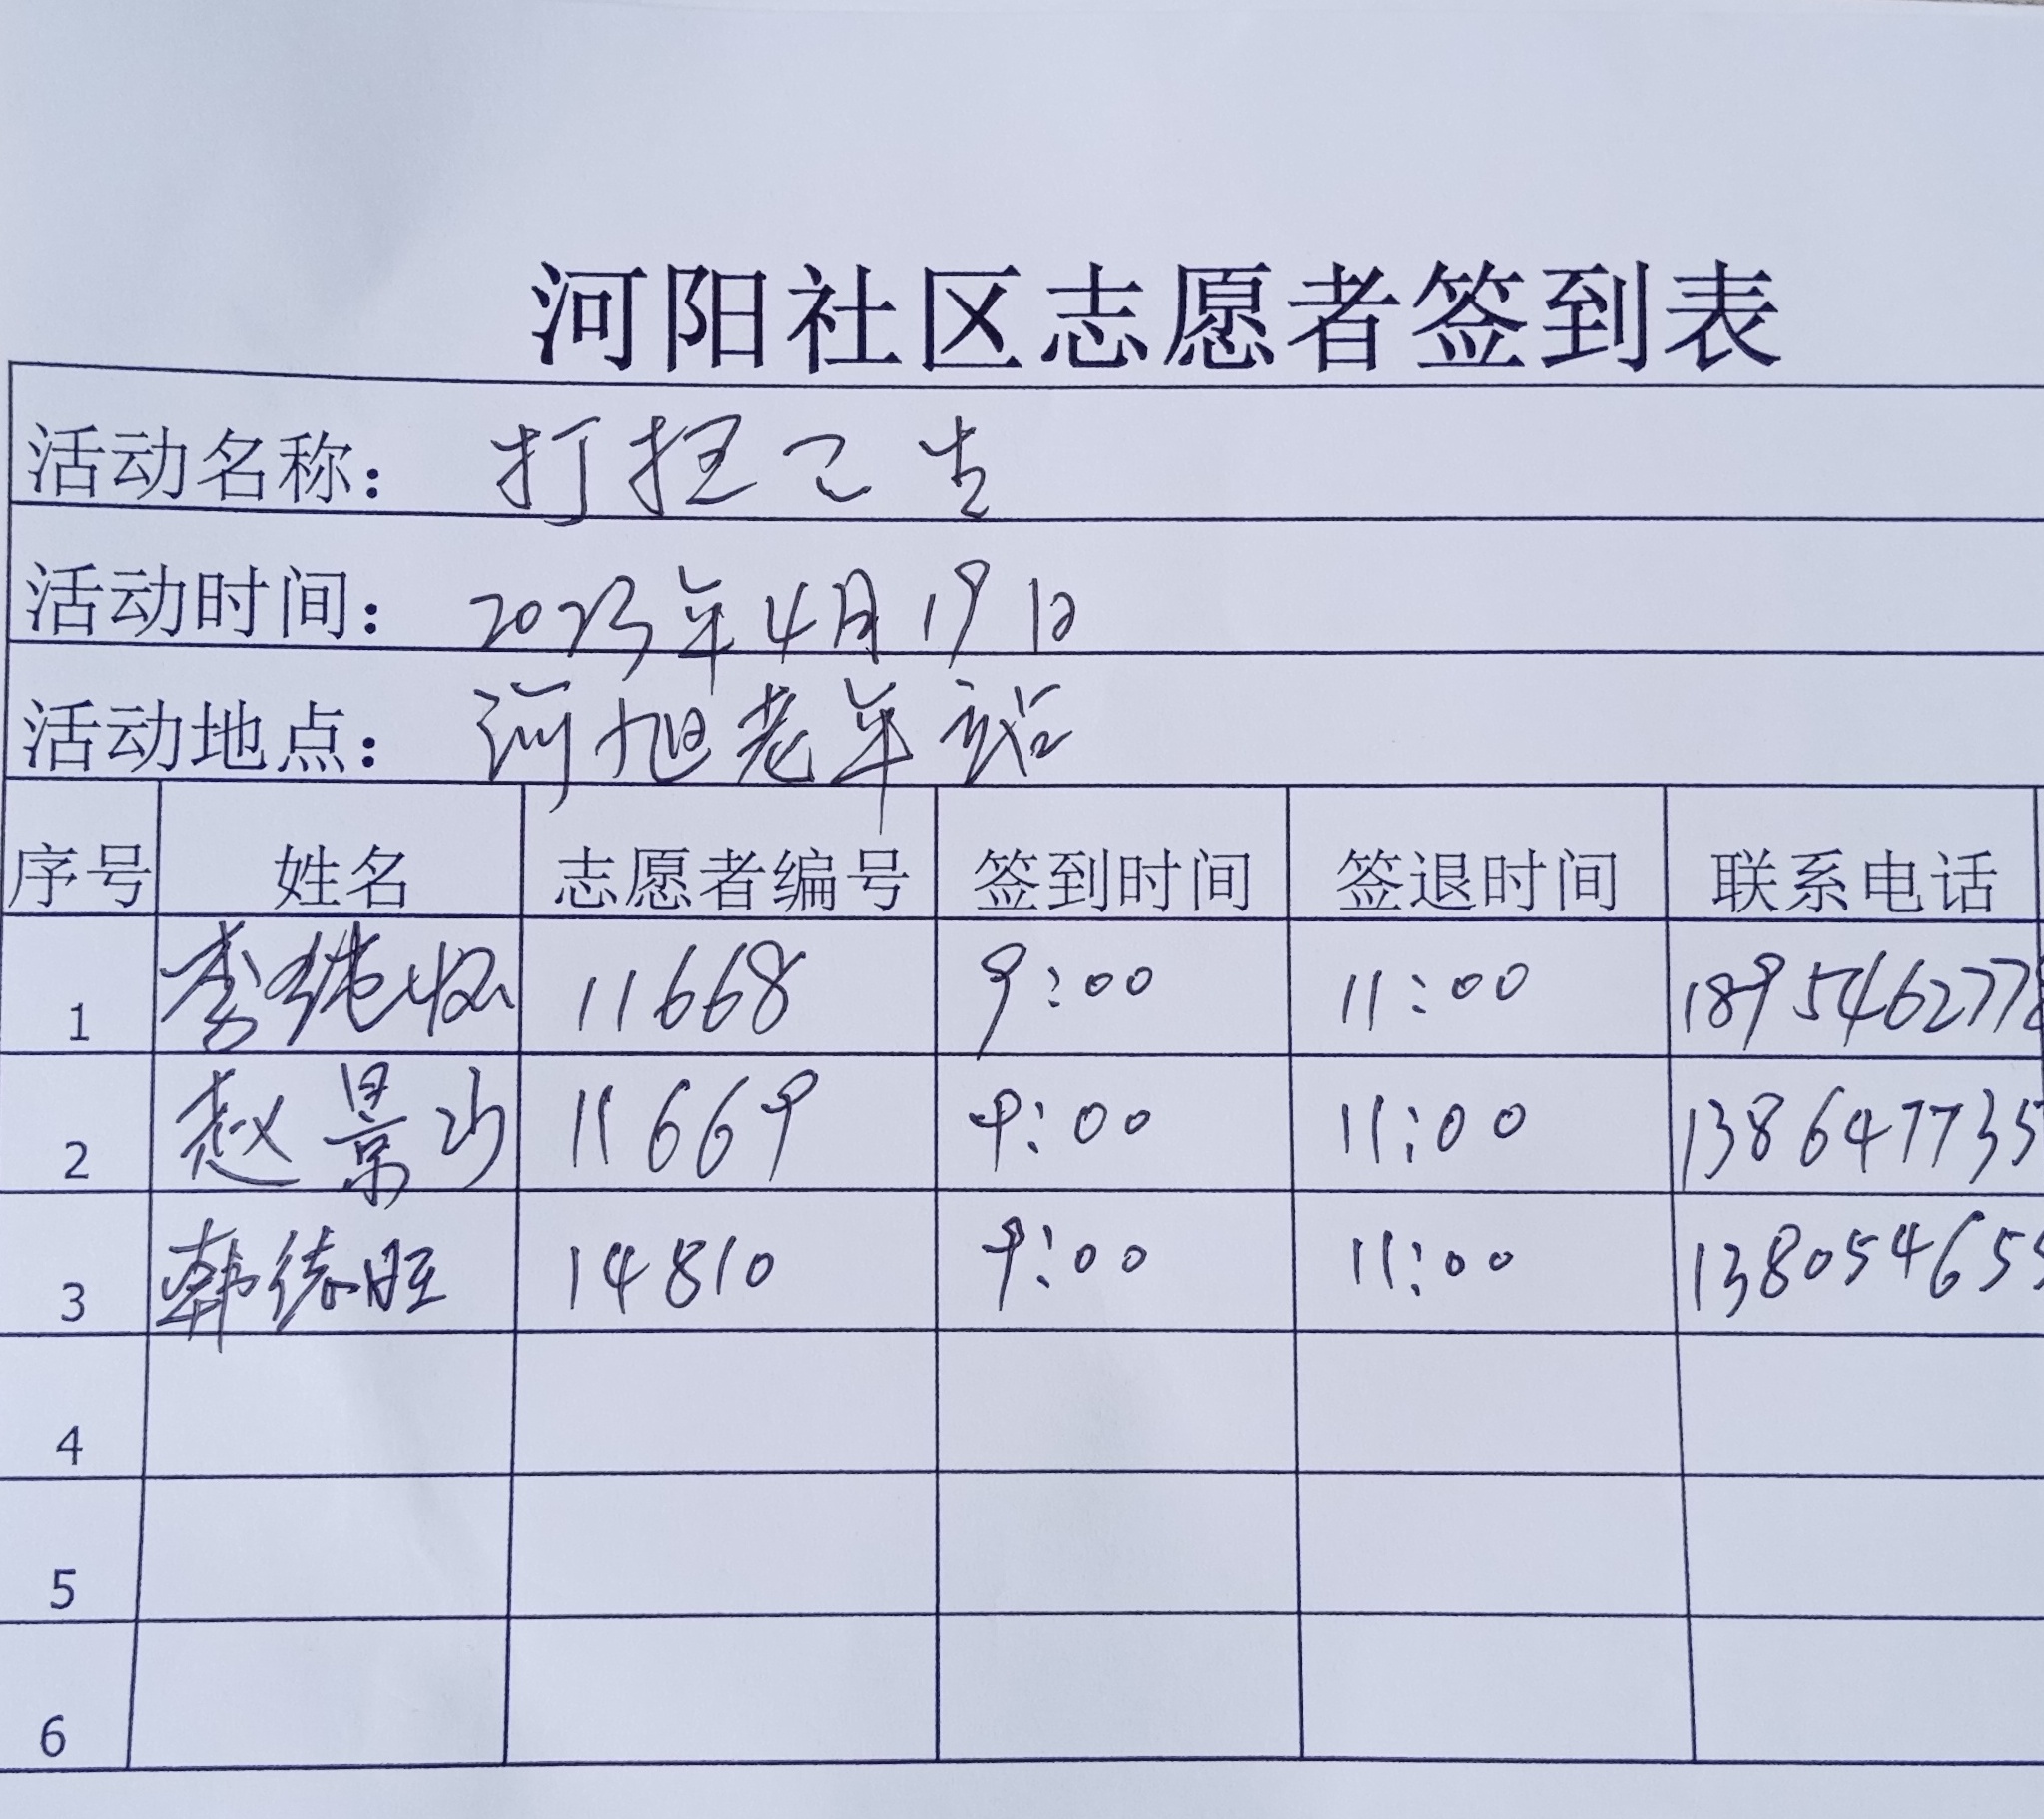 河阳社区志愿者签到表
活动名称： 打扫卫生
活动时间： 2023年4月19日
活动地点： 河旭老年站
序号 姓名 志愿者编号 签到时间 签退时间 联系电话
1 李 11668 9:00 11:00 1895462778
2 赵景 11669 9:00 11:00 138647735
3 韩德旺 14810 9:00 11:00 138054655
4
5
6